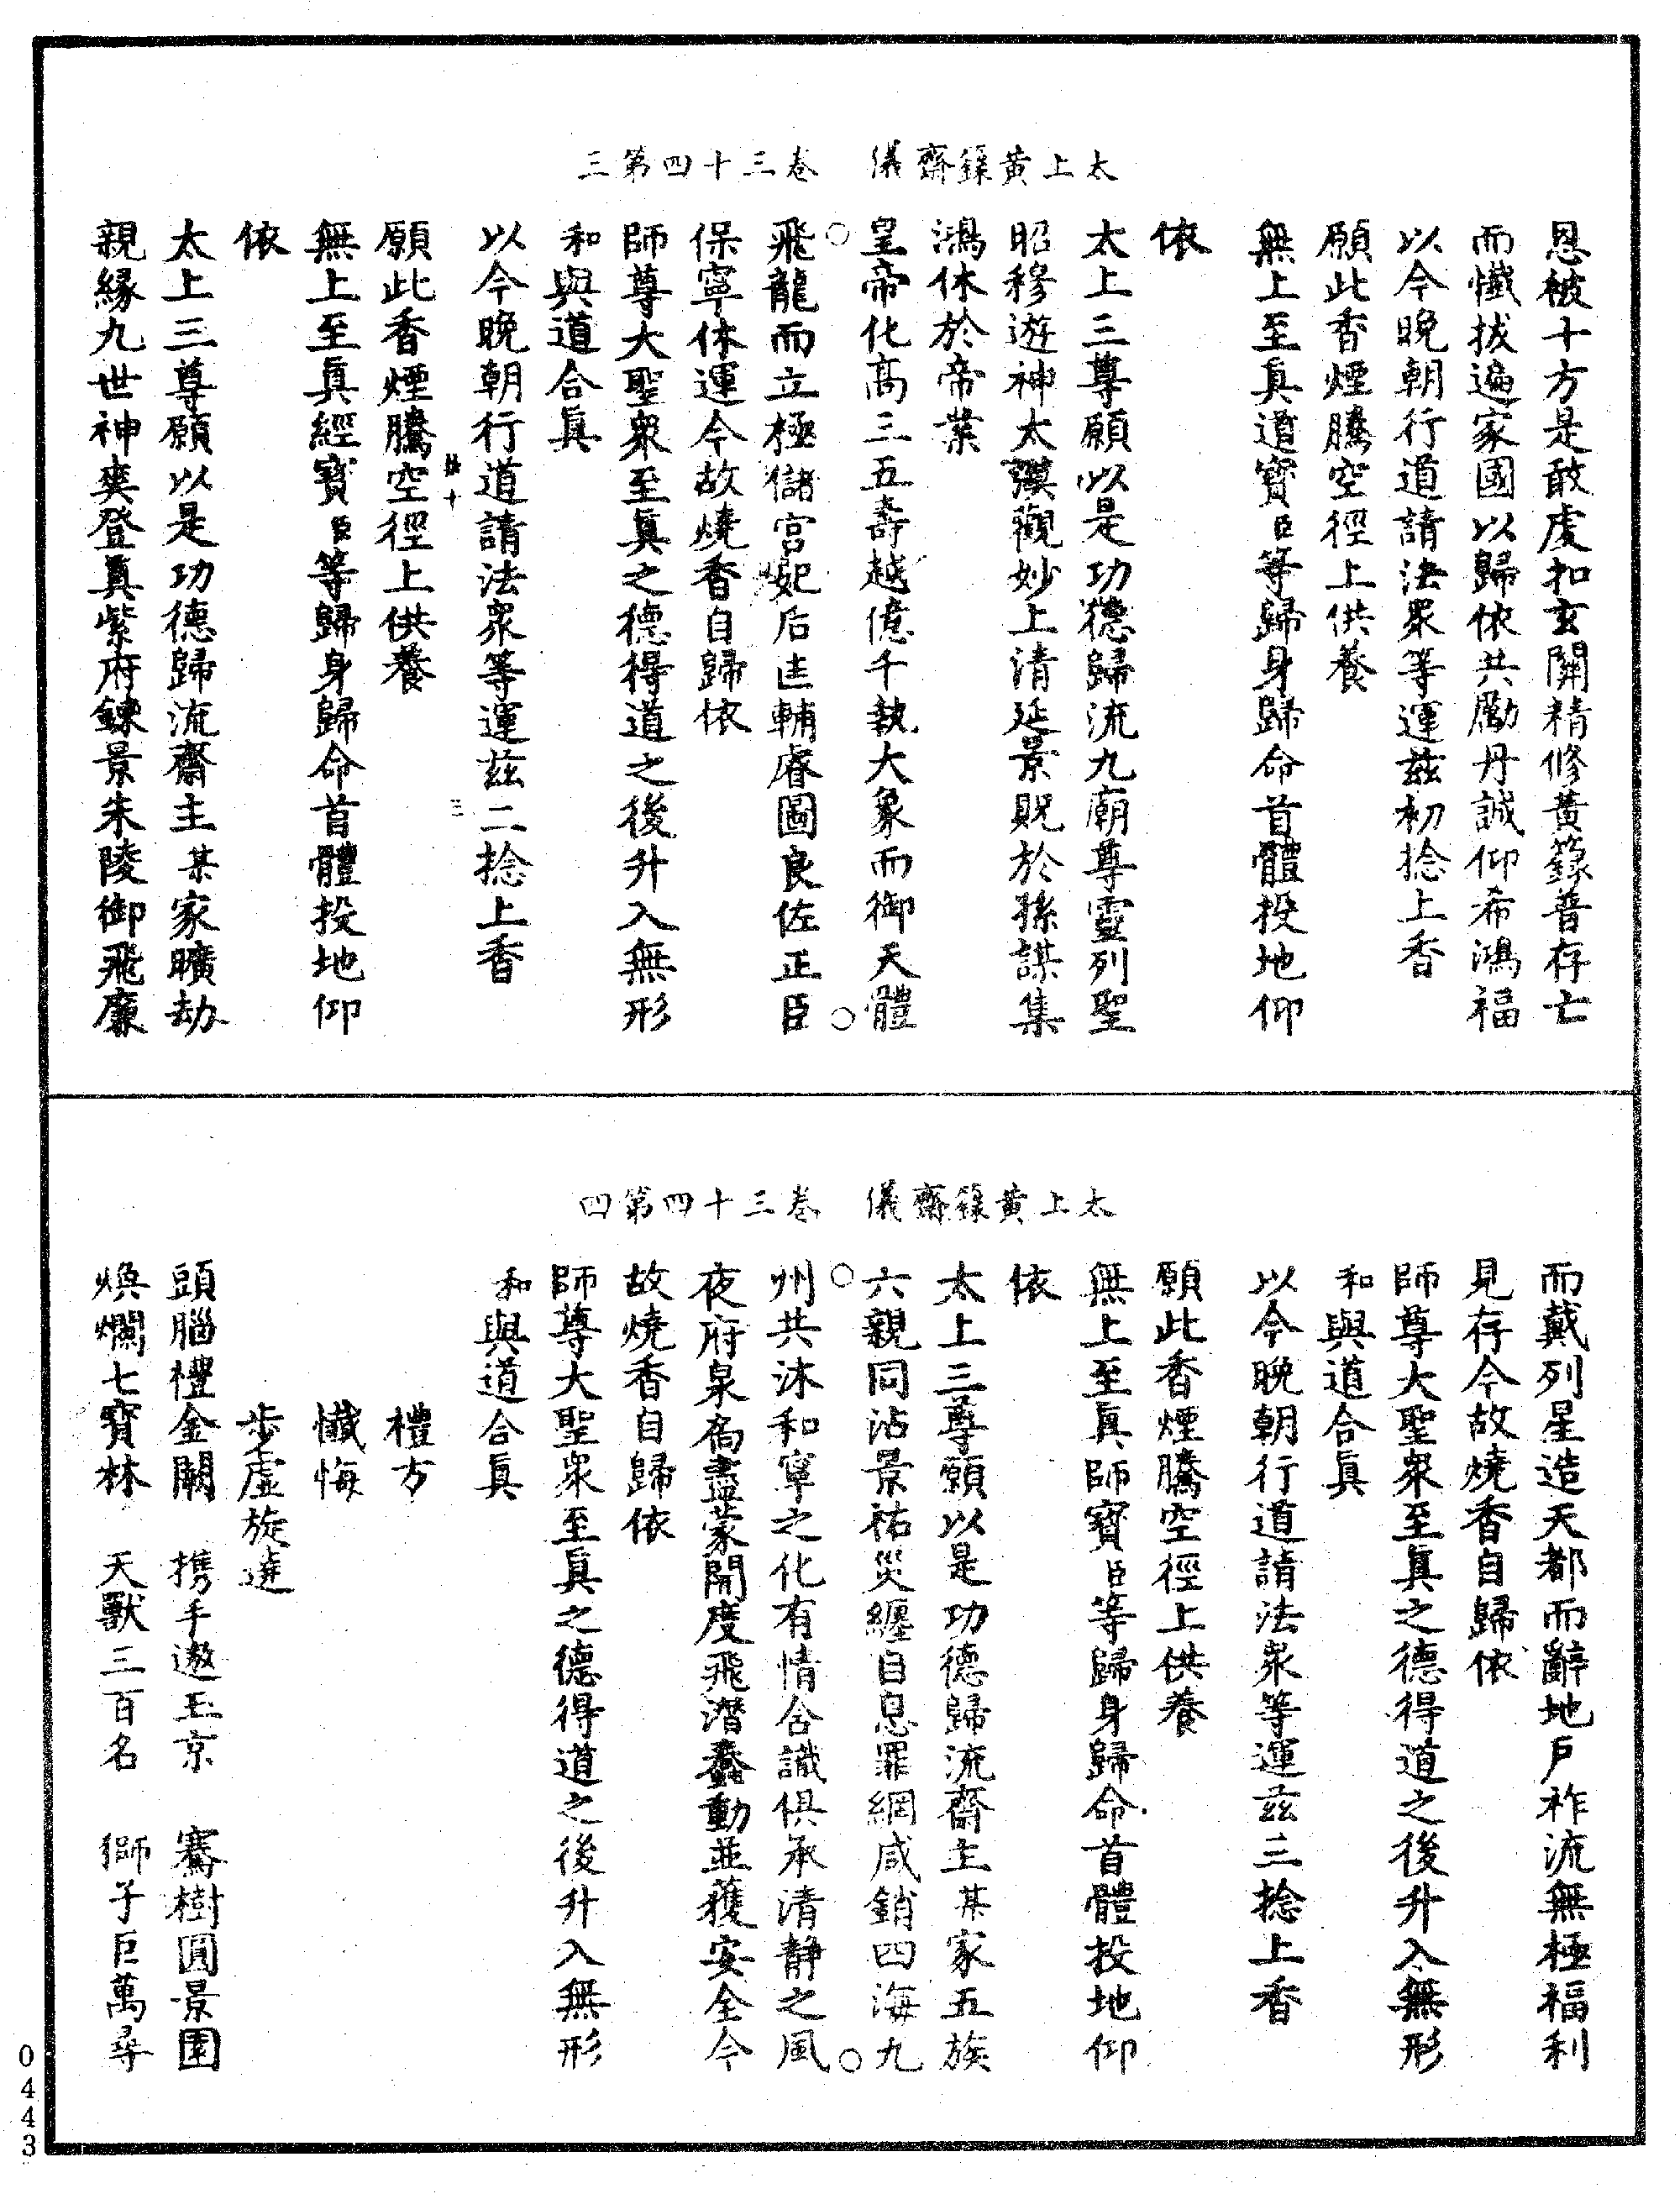 太上黃籙齋儀　卷三十四第三
恩被十方是敢虔扣玄關精修黃籙普存亡
而懺拔遍家國以歸依共勵丹誠仰希鴻福
以今晚朝行道請法眾等運茲初捻上香
願此香煙騰空徑上供養
無上至真道寶臣等歸身歸命首體投地仰
依
太上三尊願以是功德歸流九廟尊靈列聖
昭穆遊神太漠觀妙上清延景貺於孫謀集
鴻休於帝業
○皇帝化高三五壽越億千執大象而御天體○
飛龍而立極儲宮妃后匡輔睿圖良佐正臣
保寧休運今故燒香自歸依
師尊大聖眾至真之德得道之後升入無形
和與道合真
以今晚朝行道請法眾等運茲二捻上香
十　三
願此香煙騰空徑上供養
無上至真經寶臣等歸身歸命首體投地仰
依
太上三尊願以是功德歸流齋主某家曠劫
親緣九世神爽登真紫府鍊景朱陵御飛廉
太上黃籙齋儀　卷三十四第四
而戴列星造天都而辭地戶祚流無極福利
見存今故燒香自歸依
師尊大聖眾至真之德得道之後升入無形
和與道合真
以今晚朝行道請法眾等運茲三捻上香
願此香煙騰空徑上供養
無上至真師寶臣等歸身歸命首體投地仰
依
太上三尊願以是功德歸流齋主某家五族
○六親同沾景祐災纏自息罪網咸銷四海九○
州共沐和寧之化有情含識俱承清靜之風
夜府泉扃盡蒙開度飛潛蠢動並獲安全今
故燒香自歸依
師尊大聖眾至真之德得道之後升入無形
和與道合真
禮方
懺悔
步虛旋遶
頭腦禮金闕　携手遨玉京　騫樹圓景園
煥爛七寶林　天獸三百名　獅子巨萬尋
0443